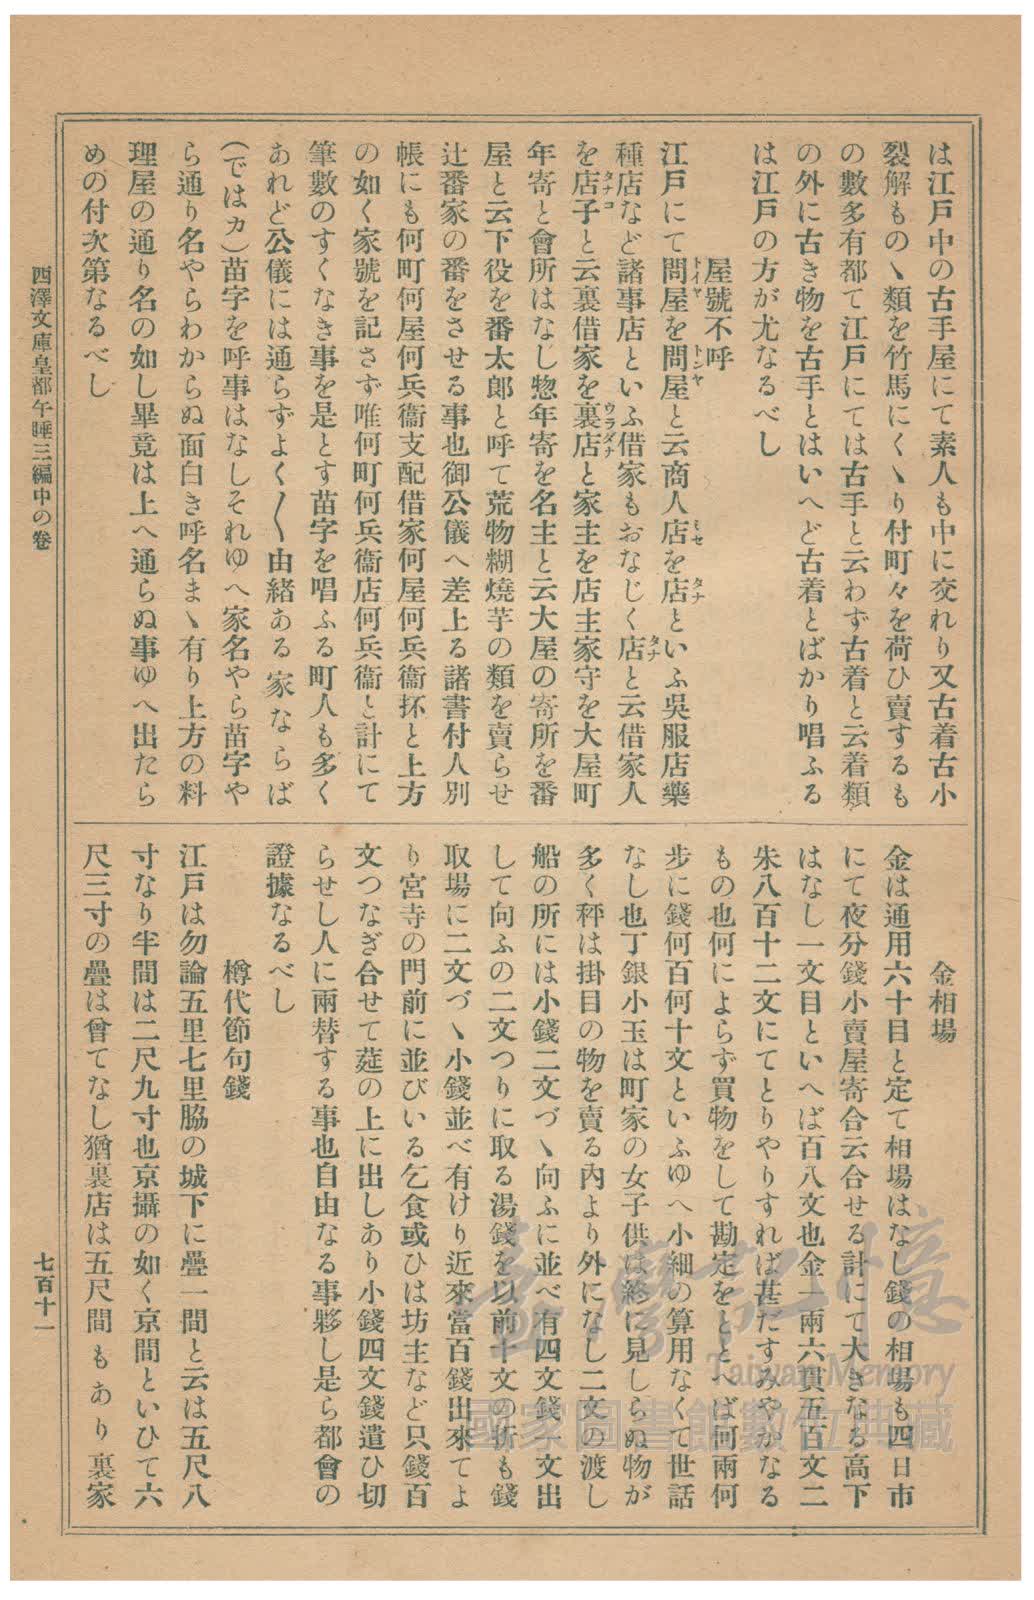 は江戸中の古手屋にて素人も中に交れり又古着古小
裂解ものヽ類を竹馬にくヽり付町々を荷ひ賣するも
の數多有都て江戸にては古手と云わず古着と云着類
の外に古き物を古手とはいへど古着とばかり唱ふる
は江戸の方が尤なるべし
屋號不呼
江戸にて問屋トイヤを問屋トンヤと云商人店ミセを店タナといふ吳服店藥
種店など諸事店といふ借家もおなじく店タナと云借家人
を店子タナコと云裏借家を裏店ウラダナと家主を店主家守を大屋町
年寄と會所はなし惣年寄を名主と云大屋の寄所を番
屋と云下役を番太郎と呼て荒物糊燒芋の類を賣らせ
辻番家の番をさせる事也御公儀へ差上る諸書付人別
帳にも何町何屋何兵衞支配借家何屋何兵衞抔と上方
の如く家號を記さず唯何町何兵衞店何兵衞と計にて
筆數のすくなき事を是とす苗字を唱ふる町人も多く
あれど公儀には通らずよく〱由緒ある家ならば
(ではカ)苗字を呼事はなしそれゆへ家名やら苗字や
ら通り名やらわからぬ面白き呼名まヽ有り上方の料
理屋の通り名の如し畢竟は上へ通らぬ事ゆへ出たら
めの付次第なるべし
金相場
金は通用六十目と定て相場はなし錢の相場も四日市
にて夜分錢小賣屋寄合云合せる計にて大きなる高下
はなし一文目といへば百八文也金一兩六貫五百文二
朱八百十二文にてとりやりすれば甚だすみやかなる
もの也何によらず買物をして勘定をとヽへば何兩何
步に錢何百何十文といふゆへ小細の算用なくて世話
なし也丁銀小玉は町家の女子供は終に見しらぬ物が
多く秤は掛目の物を賣る內より外になし二文の渡し
船の所には小錢二文づヽ向ふに並べ有四文錢一文出
して向ふの二文つりに取る湯錢を以前十文の折も錢
取場に二文づヽ小錢並べ有けり近來當百錢出來てよ
り宮寺の門前に並びいる乞食或ひは坊主など只錢百
文つなぎ合せて莚の上に出しあり小錢四文錢遣ひ切
らせし人に兩替する事也自由なる事夥し是ら都會の
證據なるべし
樽代節句錢
江戸は勿論五里七里脇の城下に疊一間と云は五尺八
寸なり半間は二尺九寸也京攝の如く京間といひて六
尺三寸の疊は曾てなし猶裏店は五尺間もあり裏家
西澤文庫皇都午睡三編中の卷
七百十一
臺灣記憶
Taiwan Memory
國家圖書館數位典藏